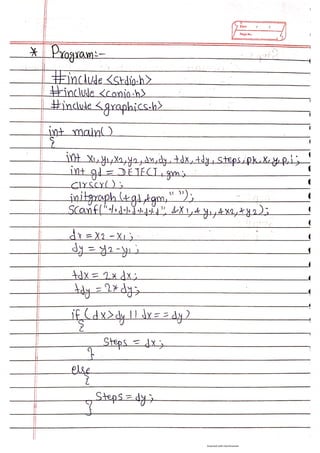 * Program:-
#include <stdio.h>
#include <conio.h>
#include <graphics.h>
int main()
{
int x1,y1,x2,y2,dx,dy,tdx,tdy,steps,pk,x,y,p,i;
int gd = DETECT, gm;
clrscr();
initgraph(&gd,&gm," ");
scanf("%d%d%d%d", &x1,&y1,&x2,&y2);
dx = x2 - x1;
dy = y2 - y1;
tdx = 2* dx;
tdy = 2* dy;
if (dx>dy || dx==dy)
{
Steps = dx;
}
else
{
Steps = dy;
}
Scanned with CamScanner